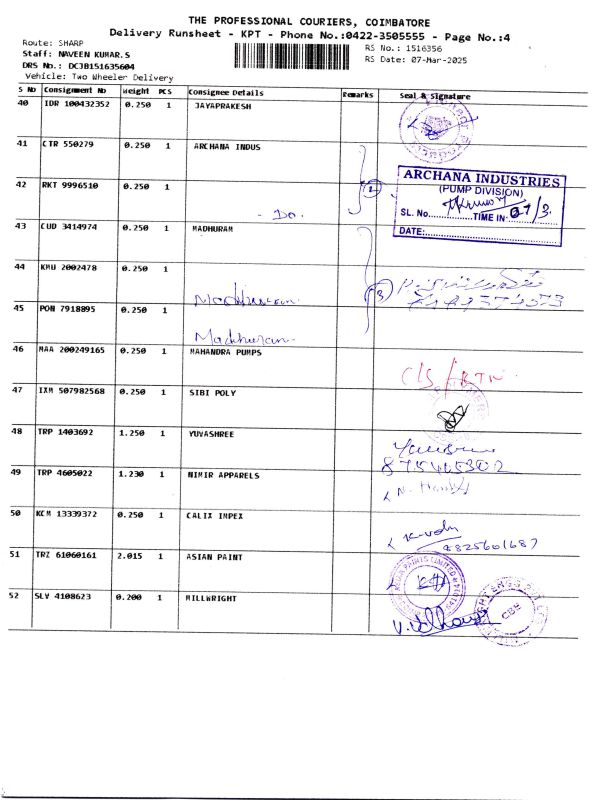 THE PROFESSIONAL COURIERS, COIMBATORE
Delivery Runsheet - KPT - Phone No.:0422-3505555 - Page No.:4
Route: SHARP
RS No.: 1516356
Staff: NAVEEN KUMAR.S
RS Date: 07-Mar-2025
DRS No.: DCJB151635604
Vehicle: Two Wheeler Delivery
S No Consignment No Weight PCS Consignee Details Remarks Seal & Signature
40 IDR 100432352 0.250 1 JAYAPRAKESH
41 CTR 550279 0.250 1 ARCHANA INDUS
ARCHANA INDUSTRIES
(PUMP DIVISION)
42 RKT 9996510 0.250 1
2
SL. No. TIME IN: 07/3.
- Do.
43 CUD 3414974 0.250 1 MADHURAM
DATE:
44 KMU 2002478 0.250 1
3
Madhuram
45 PON 7918895 0.250 1
Madhuram
46 MAA 200249165 0.250 1 MAHANDRA PUMPS
C/S/RTN
47 IXM 507982568 0.250 1 SIBI POLY
48 TRP 1403692 1.250 1 YUVASHREE
49 TRP 4605022 1.230 1 NIMIR APPARELS
50 KCM 13339372 0.250 1 CALIX IMPEX
9825601687
51 TRZ 61060161 2.015 1 ASIAN PAINT
ASIAN PAINTS LIMITED
52 SLV 4108623 0.200 1 MILLWRIGHT
CBE